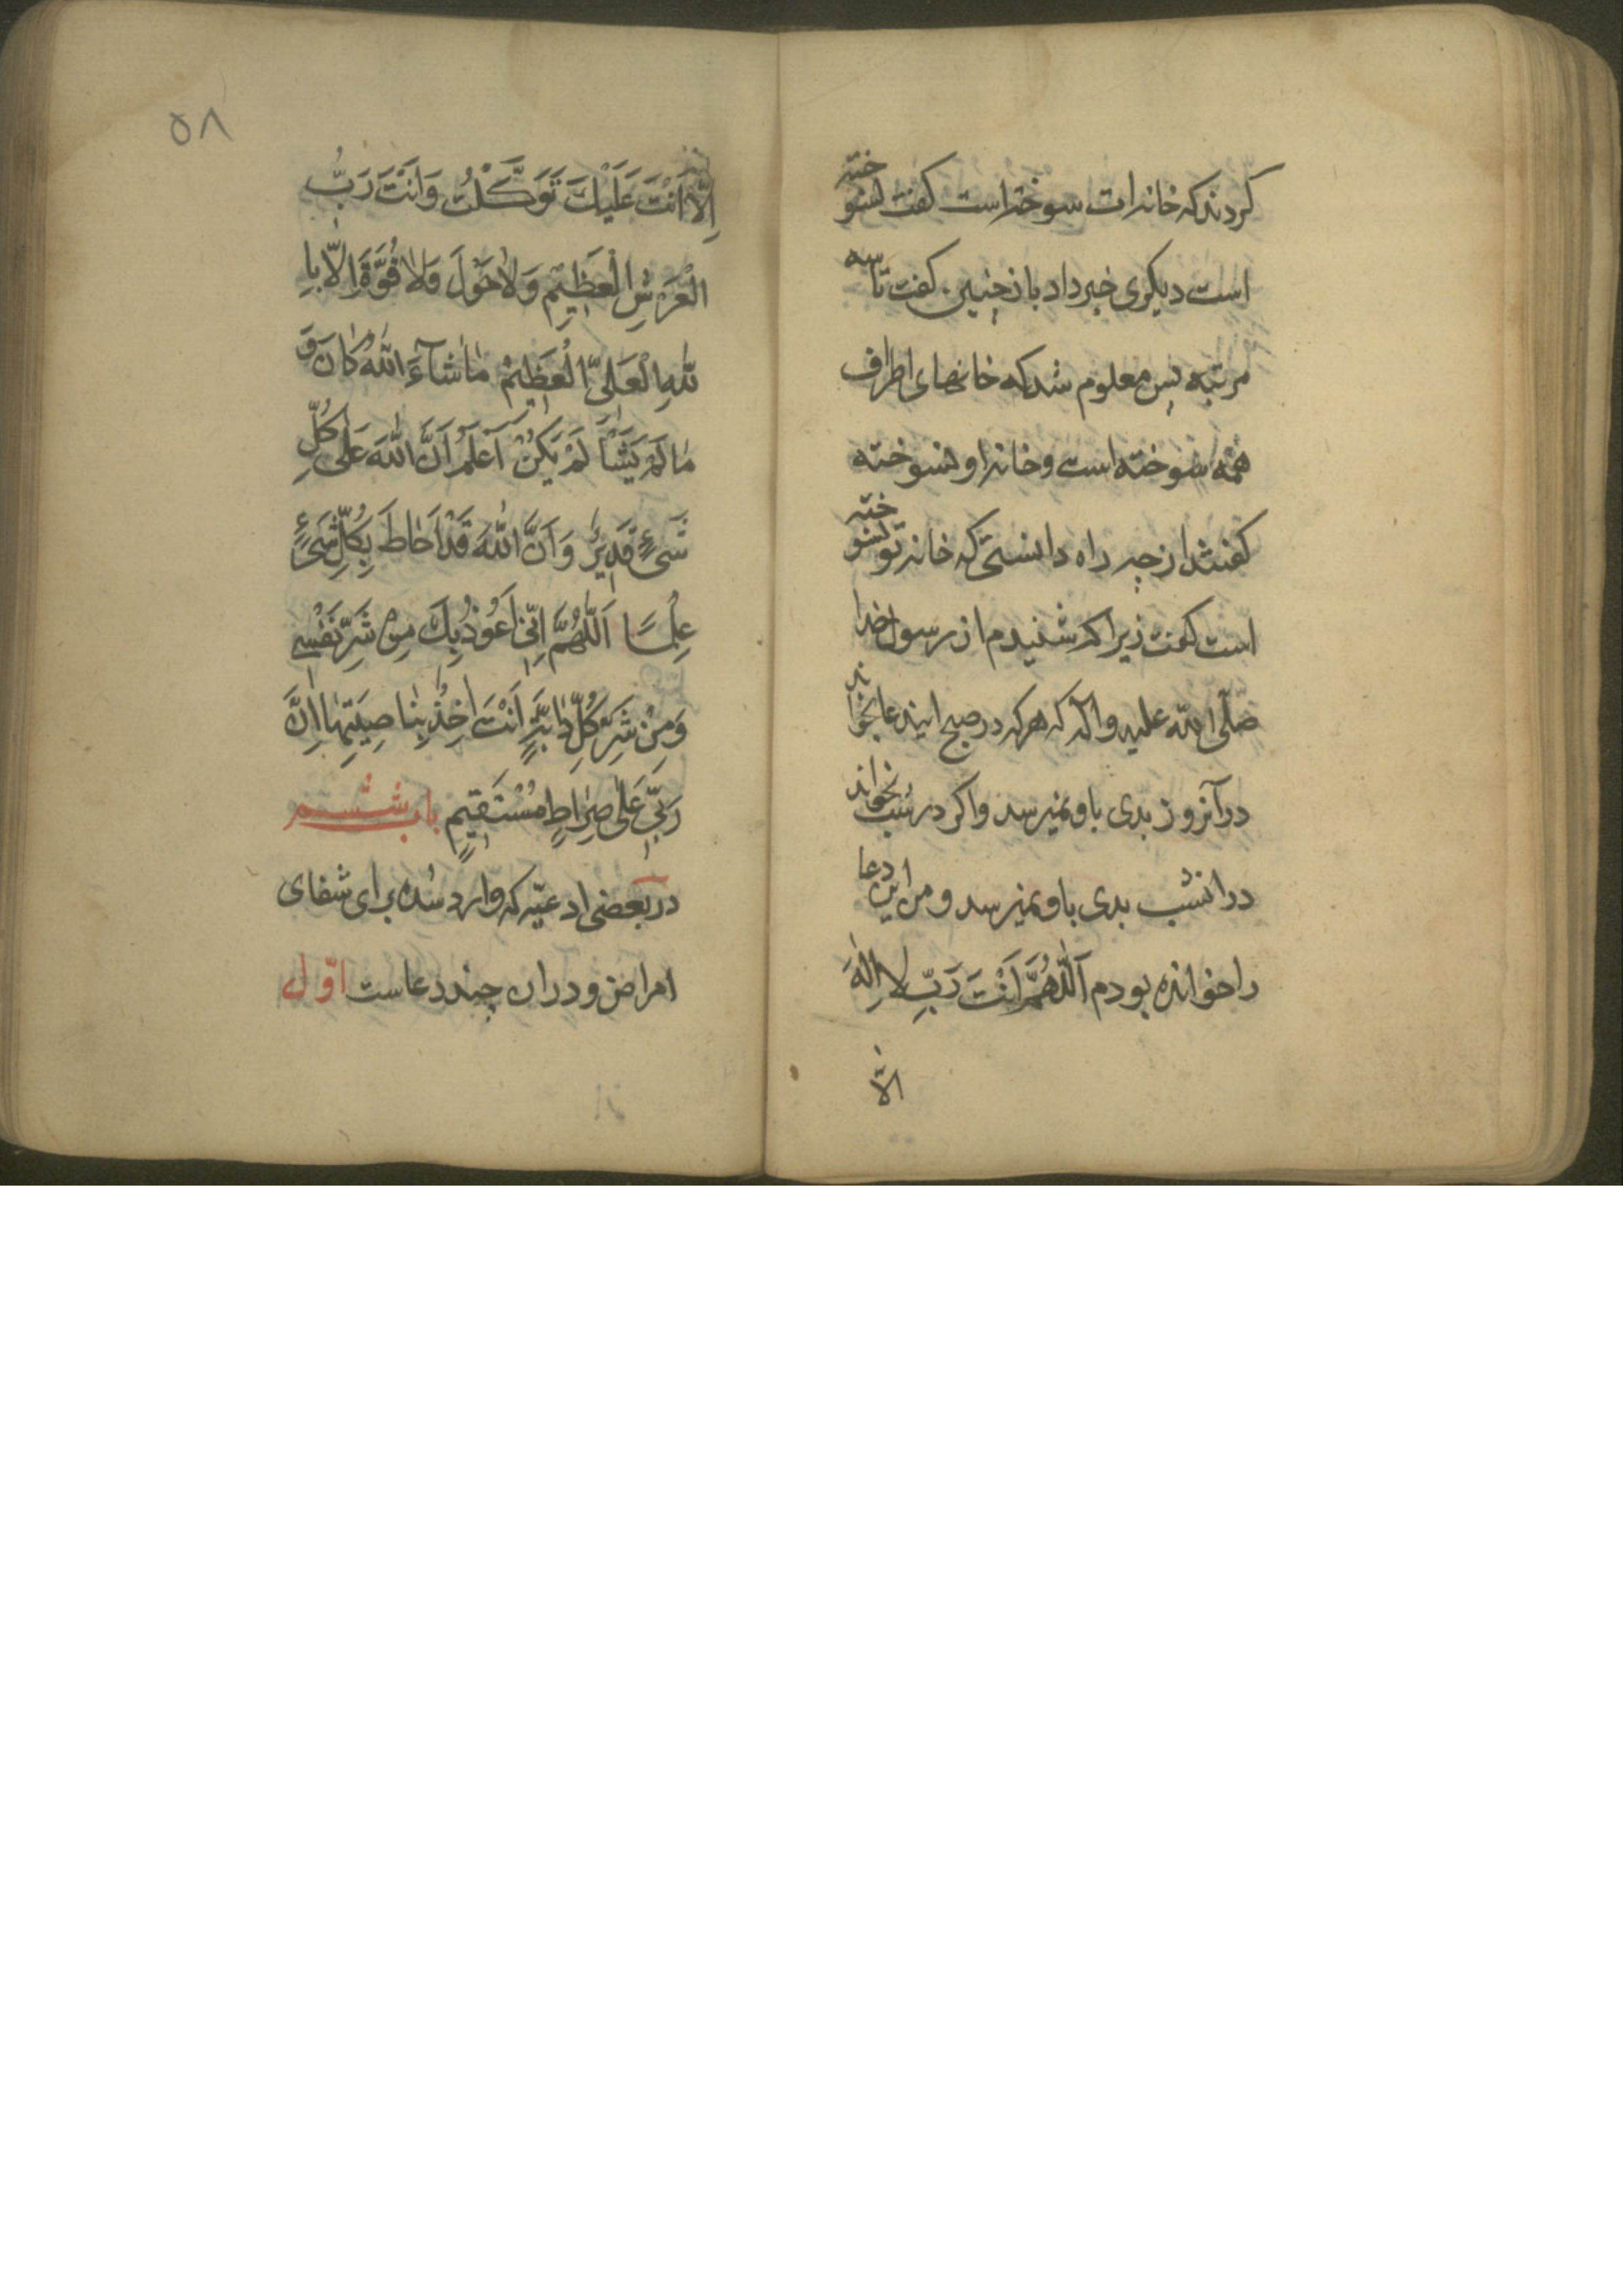 کردند که خانه ات سوخته است کفت نسوخته
است دیکری خبر داد باز چنین کفت تا سه
مرتبه پس معلوم شد که خانهای اطراف
همه سوخته است و خانه او نسوخته
کفتند از چه راه دانستی که خانه تو نسوخته
است کفت زیرا که شنیدم از رسول خدا
صلّی اللّه علیه و اله که هر که در صبح ایندعا بخواند
در آنروز بدی باو نمیرسد و اکر در شب بخواند
در انشب بدی باو نمیرسد و من این دعا
را خوانده بودم اَللّٰهُمَّ اَنْتَ رَبّی لا اِلٰهَ
الّا
۵۸
اِلّا اَنْتَ عَلَیْكَ تَوَکَّلْتُ وَ اَنْتَ رَبُّ
الْعَرْشِ الْعَظِیْمِ وَ لاٰ حَوْلَ وَلاٰ قُوَّةَ اِلاّ بِا
للّٰهِ الْعَلِیِّ الْعَظِیْمْ مٰا شٰآءَ اللّٰهُ کٰانَ وَ
مٰا لَمْ یَشَأْ لَمْ یَکُنْ اَعْلَمُ اَنَّ اللّٰهَ عَلٰی کُلِّ
شَیءٍ قَدِیرٌ وَ اَنَّ اللّٰهَ قَدْ اَحٰاطَ بِکُلِّ شَیءٍ
عِلْمًا اَللّٰهُمَّ اِنّی اَعُوذُ بِكَ مِنْ شَرِّ نَفْسِی
وَ مِنْ شَرِّ کُلِّ دٰابَّةٍ اَنْتَ اٰخِذٌ بِنٰاصِیَتِهٰا اِنَّ
رَبّی عَلٰی صِرٰاطٍ مُسْتَقِیمٍ باب ششم
در بعضی ادعیّه که وارد شده برای شفای
امراض و در ان چند دعاست اوّل